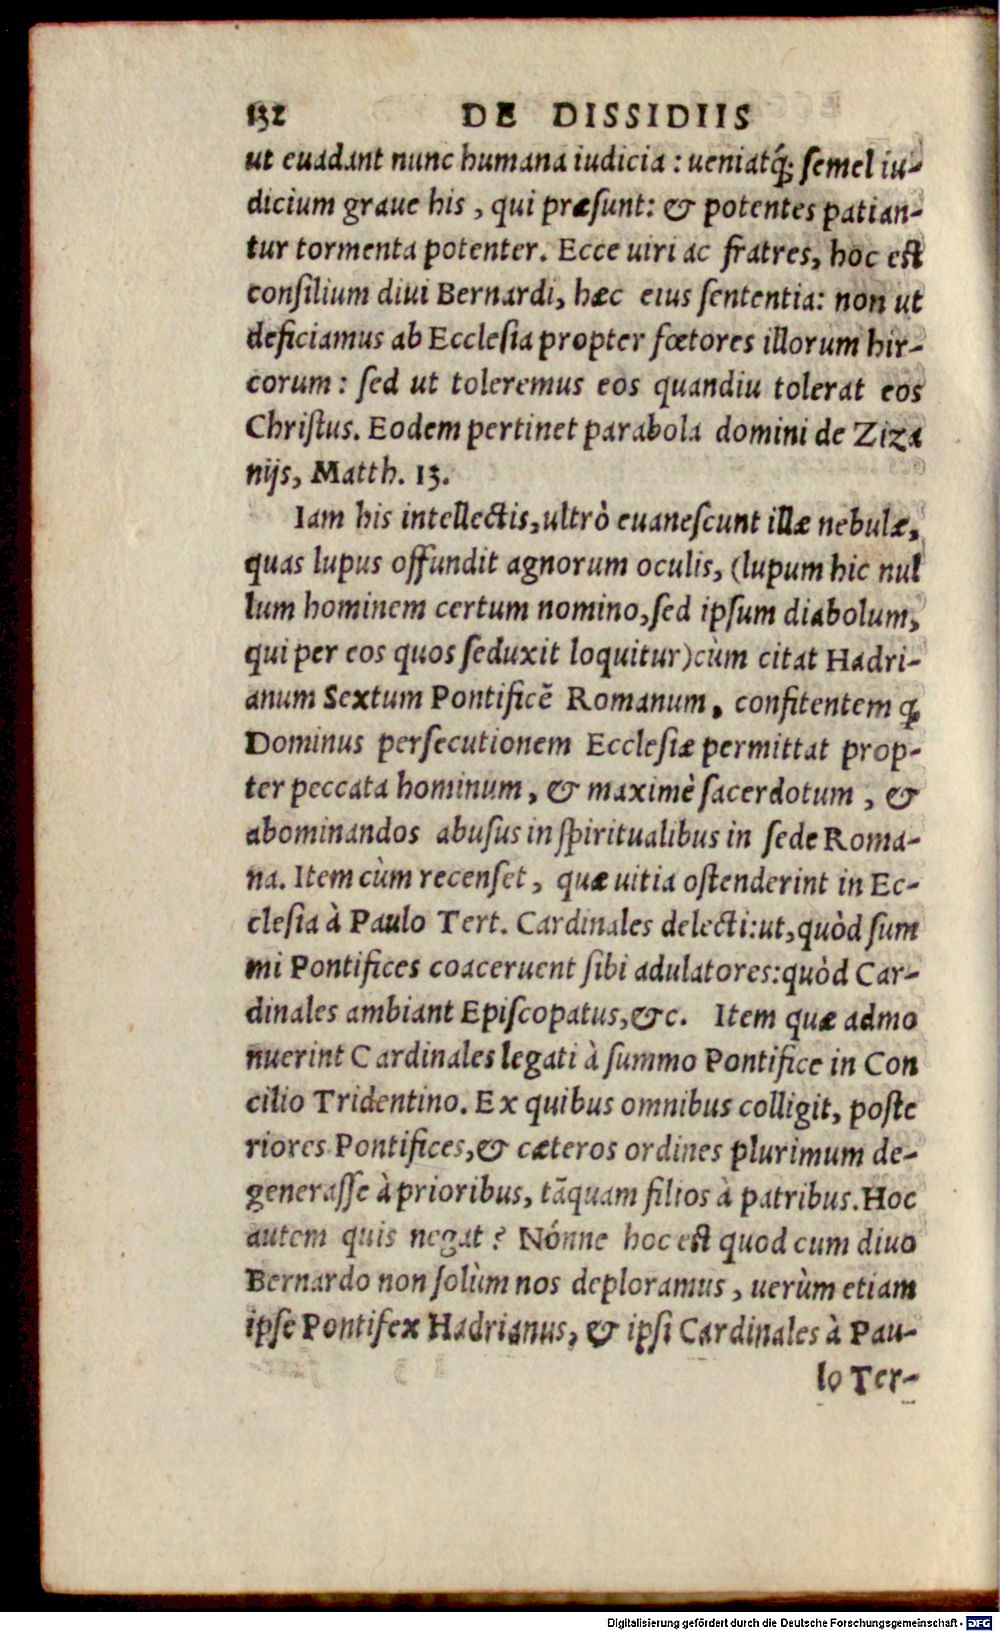 132 DE DISSIDIIS
ut euadant nunc humana iudicia: ueniatq́; semel iu-
dicium graue his, qui præsunt: & potentes patian-
tur tormenta potenter. Ecce uiri ac fratres, hoc est
consilium diui Bernardi, hæc eius sententia: non ut
deficiamus ab Ecclesia propter fœtores illorum hir-
corum: sed ut toleremus eos quandiu tolerat eos
Christus. Eodem pertinet parabola domini de Ziza
nijs, Matth. 13.
Iam his intellectis, ultrò euanescunt illæ nebulæ,
quas lupus offundit agnorum oculis, (lupum hic nul
lum hominem certum nomino, sed ipsum diabolum,
qui per eos quos seduxit loquitur) cùm citat Hadri-
anum Sextum Pontificẽ Romanum, confitentem ꝙ
Dominus persecutionem Ecclesiæ permittat prop-
ter peccata hominum, & maximè sacerdotum, &
abominandos abusus in spiritualibus in sede Roma-
na. Item cùm recenset, quæ uitia ostenderint in Ec-
clesia à Paulo Tert. Cardinales delecti: ut, quòd sum
mi Pontifices coaceruent sibi adulatores: quòd Car-
dinales ambiant Episcopatus, &c. Item quæ admo
nuerint Cardinales legati à summo Pontifice in Con
cilio Tridentino. Ex quibus omnibus colligit, poste
riores Pontifices, & cæteros ordines plurimum de-
generasse à prioribus, tãquam filios à patribus. Hoc
autem quis negat? Nónne hoc est quod cum diuo
Bernardo non solùm nos deploramus, uerùm etiam
ipse Pontifex Hadrianus, & ipsi Cardinales à Pau-
lo Ter-
Digitalisierung gefördert durch die Deutsche Forschungsgemeinschaft - DFG